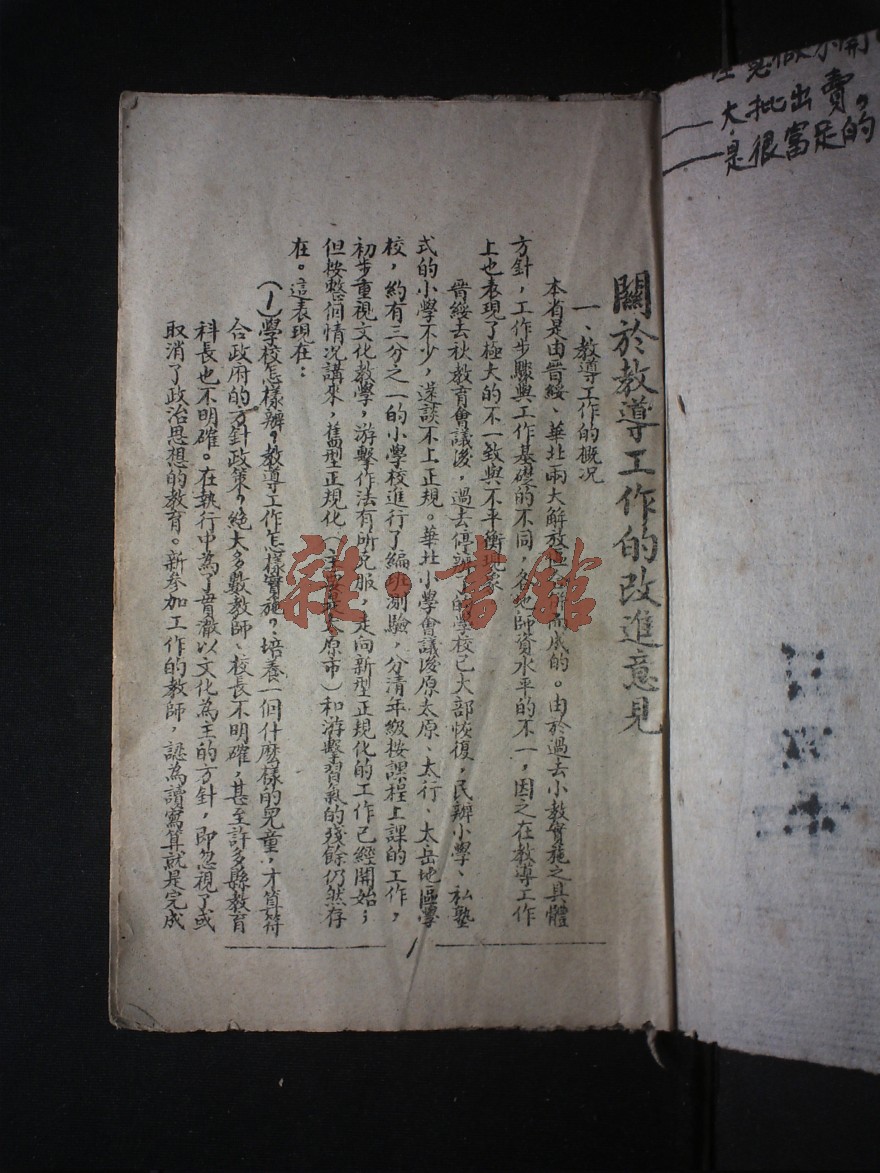 大批出賣。
是很富足的
關於教導工作的改進意見
一、教導工作的概況
本省是由晋綏、華北兩大解放區合併而成的。由於過去小教實施之具體
方針，工作步驟與工作基礎的不同，各地師資水平的不一，因之在教導工作
上也表現了極大的不一致與不平衡現象
晋綏去秋教育會議後，過去停辦了的學校已大部恢復，民辦小學、私塾
式的小學不少，還談不上正規。華北小學會議後原太原、太行、太岳地區學
校，約有三分之一的小學校進行了編班測驗，分清年級按課程上課的工作，
初步重視文化教學，游擊作法有所克服，走向新型正規化的工作已經開始；
但按整個情况講來，舊型正規化（主要是太原市）和游擊習氣的殘餘仍然存
在。這表現在：
(1)學校怎樣辦，教導工作怎樣實施，培養一個什麼樣的兒童，才算符
合政府的方針政策，絕大多數教師、校長不明確，甚至許多縣教育
科長也不明確。在執行中為了貫澈以文化為主的方針，即忽視了或
取消了政治思想的教育。新參加工作的教師，認為讀寫算就是完成
1
雜·書館